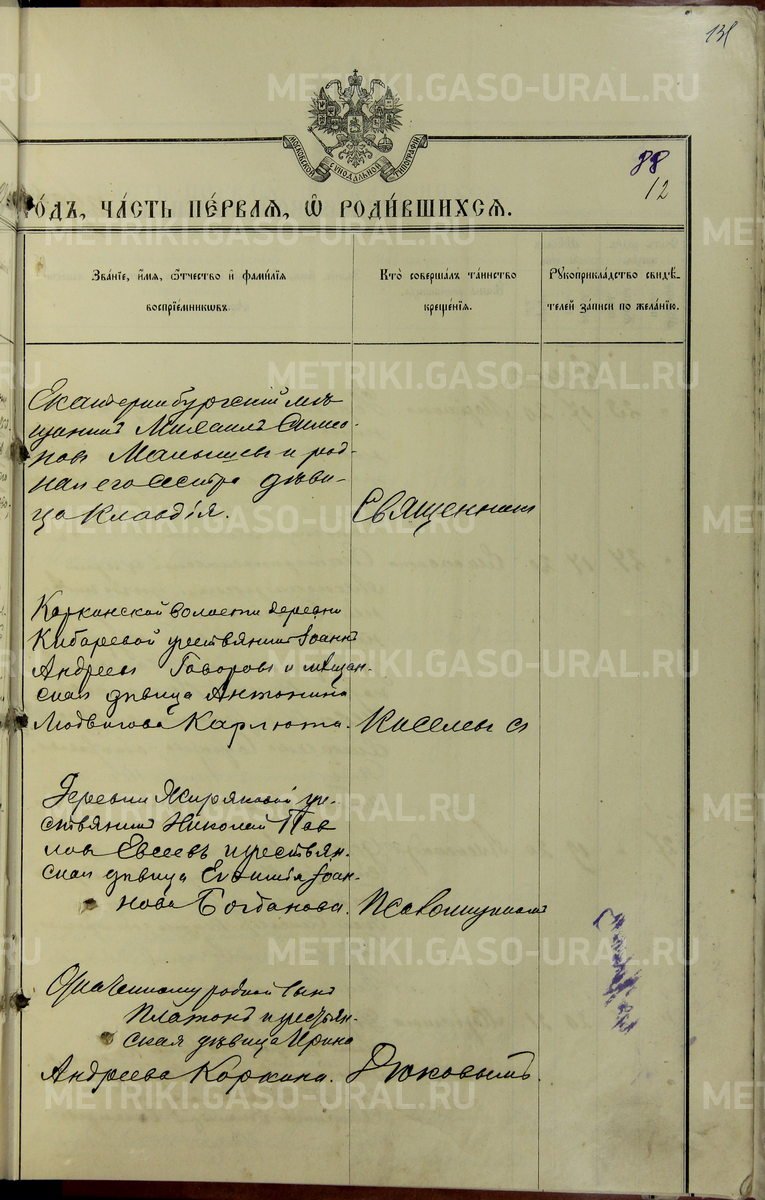 131
МОСКОВСКОЙ СѴНОДАЛЬНОЙ ТИПОГРАФІИ
88
12
го́дъ, ча́сть пе́рваѧ, ѽ роди́вшихсѧ.
Зва́нїе, и́мѧ, ѻ҆́тчество и҆ фами́лїѧ
воспрїе́мникѡвъ.
Кто̀ соверша́лъ та́инство
креще́нїѧ.
Рꙋкоприкла́дство свидѣ́-
телей за́писи по жела́нїю.
Екатеринбургскій мѣ-
щанинъ Михаилъ Симео-
новъ Малышевъ и род-
ная его сестра дѣви-
ца Клавдія.
Священникъ
Карканской волости деревни
Кибаревой крестьянинъ Іоаннъ
Андреевъ Говоровъ и мѣщан-
ская дѣвица Антонина
Людвигова Карлюта.
Киселевъ съ
Деревни Жиряковой кре-
стьянинъ Николай Пав
ловъ Евсеевъ и крестьян-
ская дѣвица Евѳимія Іоан-
нова Богданова.
Псаломщикомъ
родной сынъ
Платонъ и крестьян-
ская дѣвица Ирина
Андреева Коркина.
Дюковымъ.
METRIKI.GASO-URAL.RU